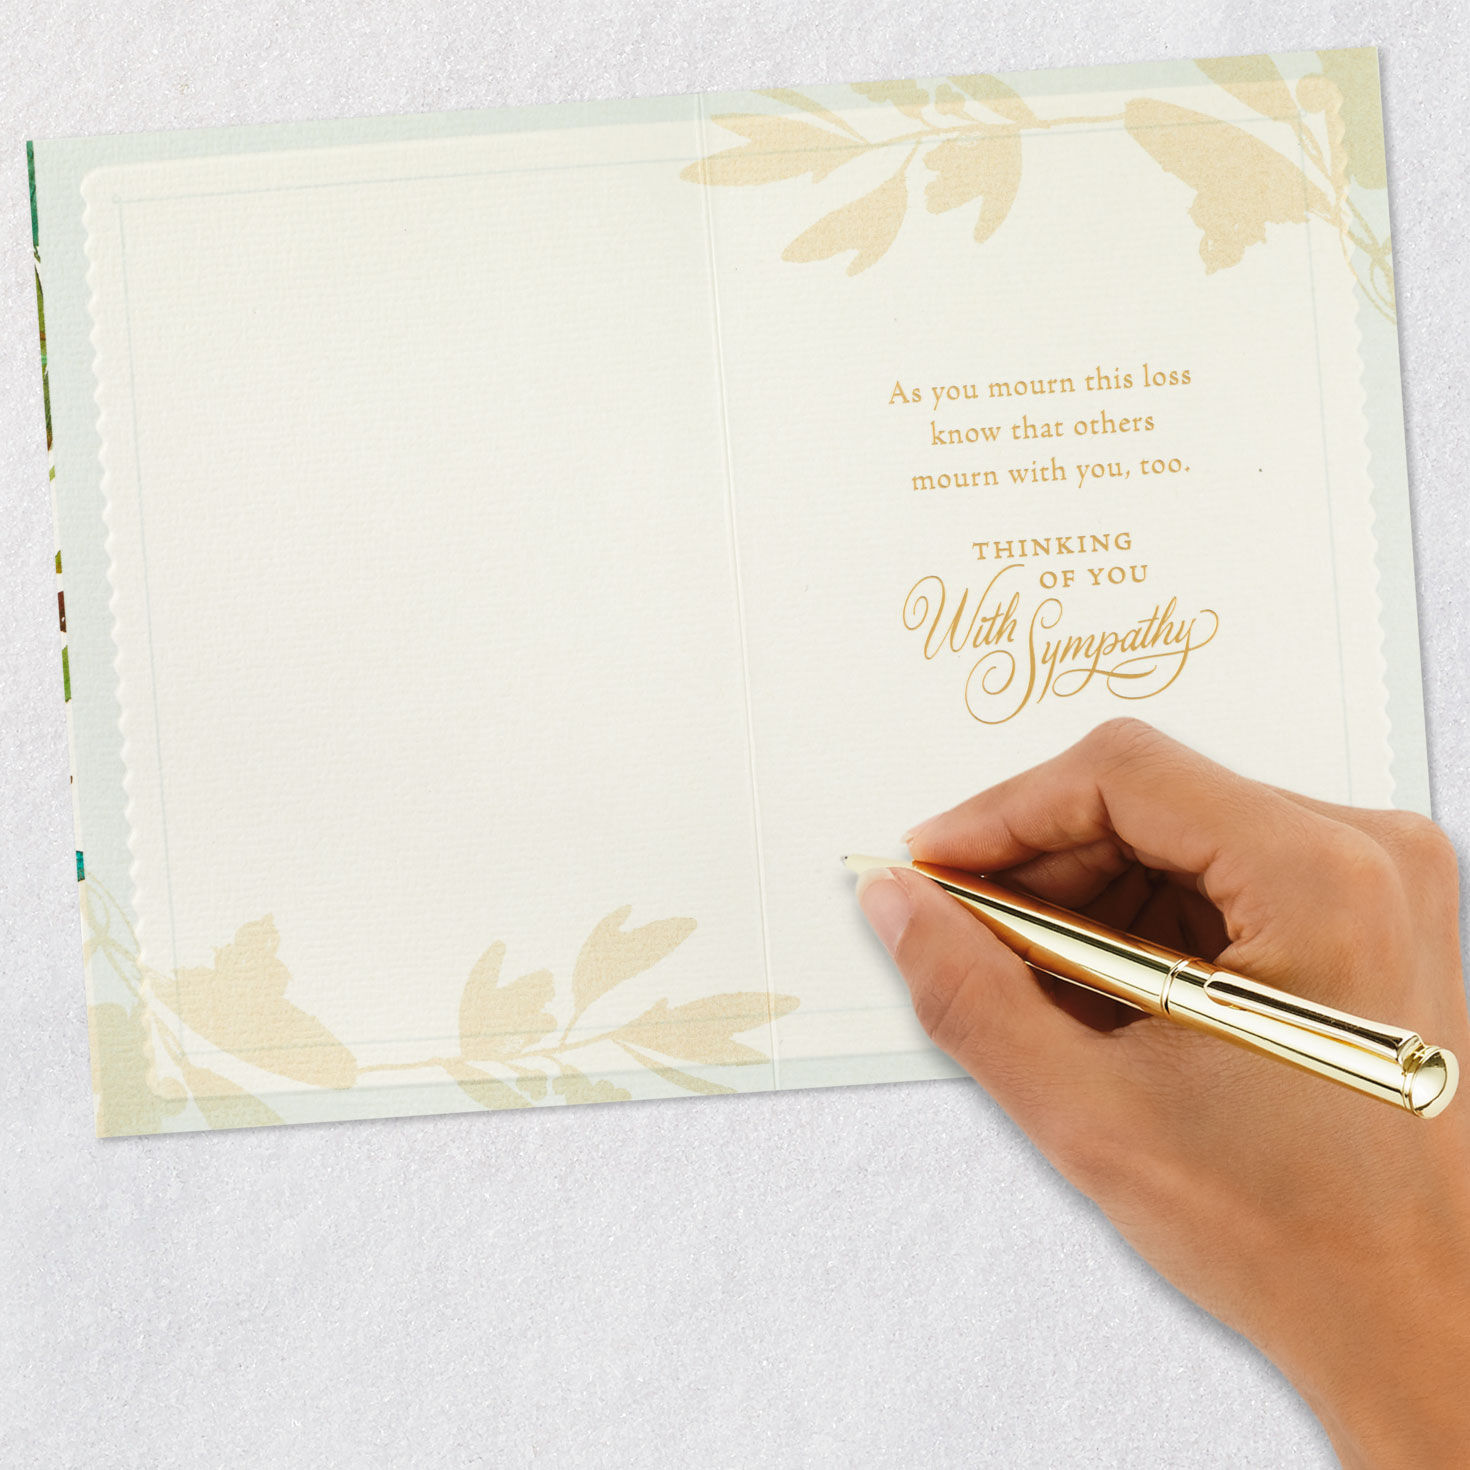 As you mourn this loss
know that others
mourn with you, too.
THINKING
OF YOU
With Sympathy